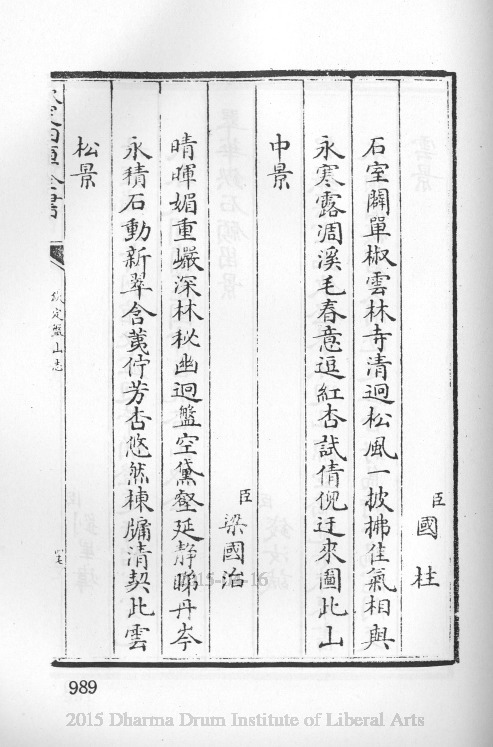 臣國柱
石室闢單椒雲林寺清迥松風一披拂佳氣相與
永寒露凋溪毛春意逗紅杏試倩倪迂來圖比山
中景
臣梁國治
晴暉媚重巘深林秘幽迥盤空黛壑延靜睇丹岑
永積石動新翠含荑佇芳杏悠然棟牖清契此雲
松景
欽定四庫全書
欽定盤山志
989
2015 Dharma Drum Institute of Liberal Arts